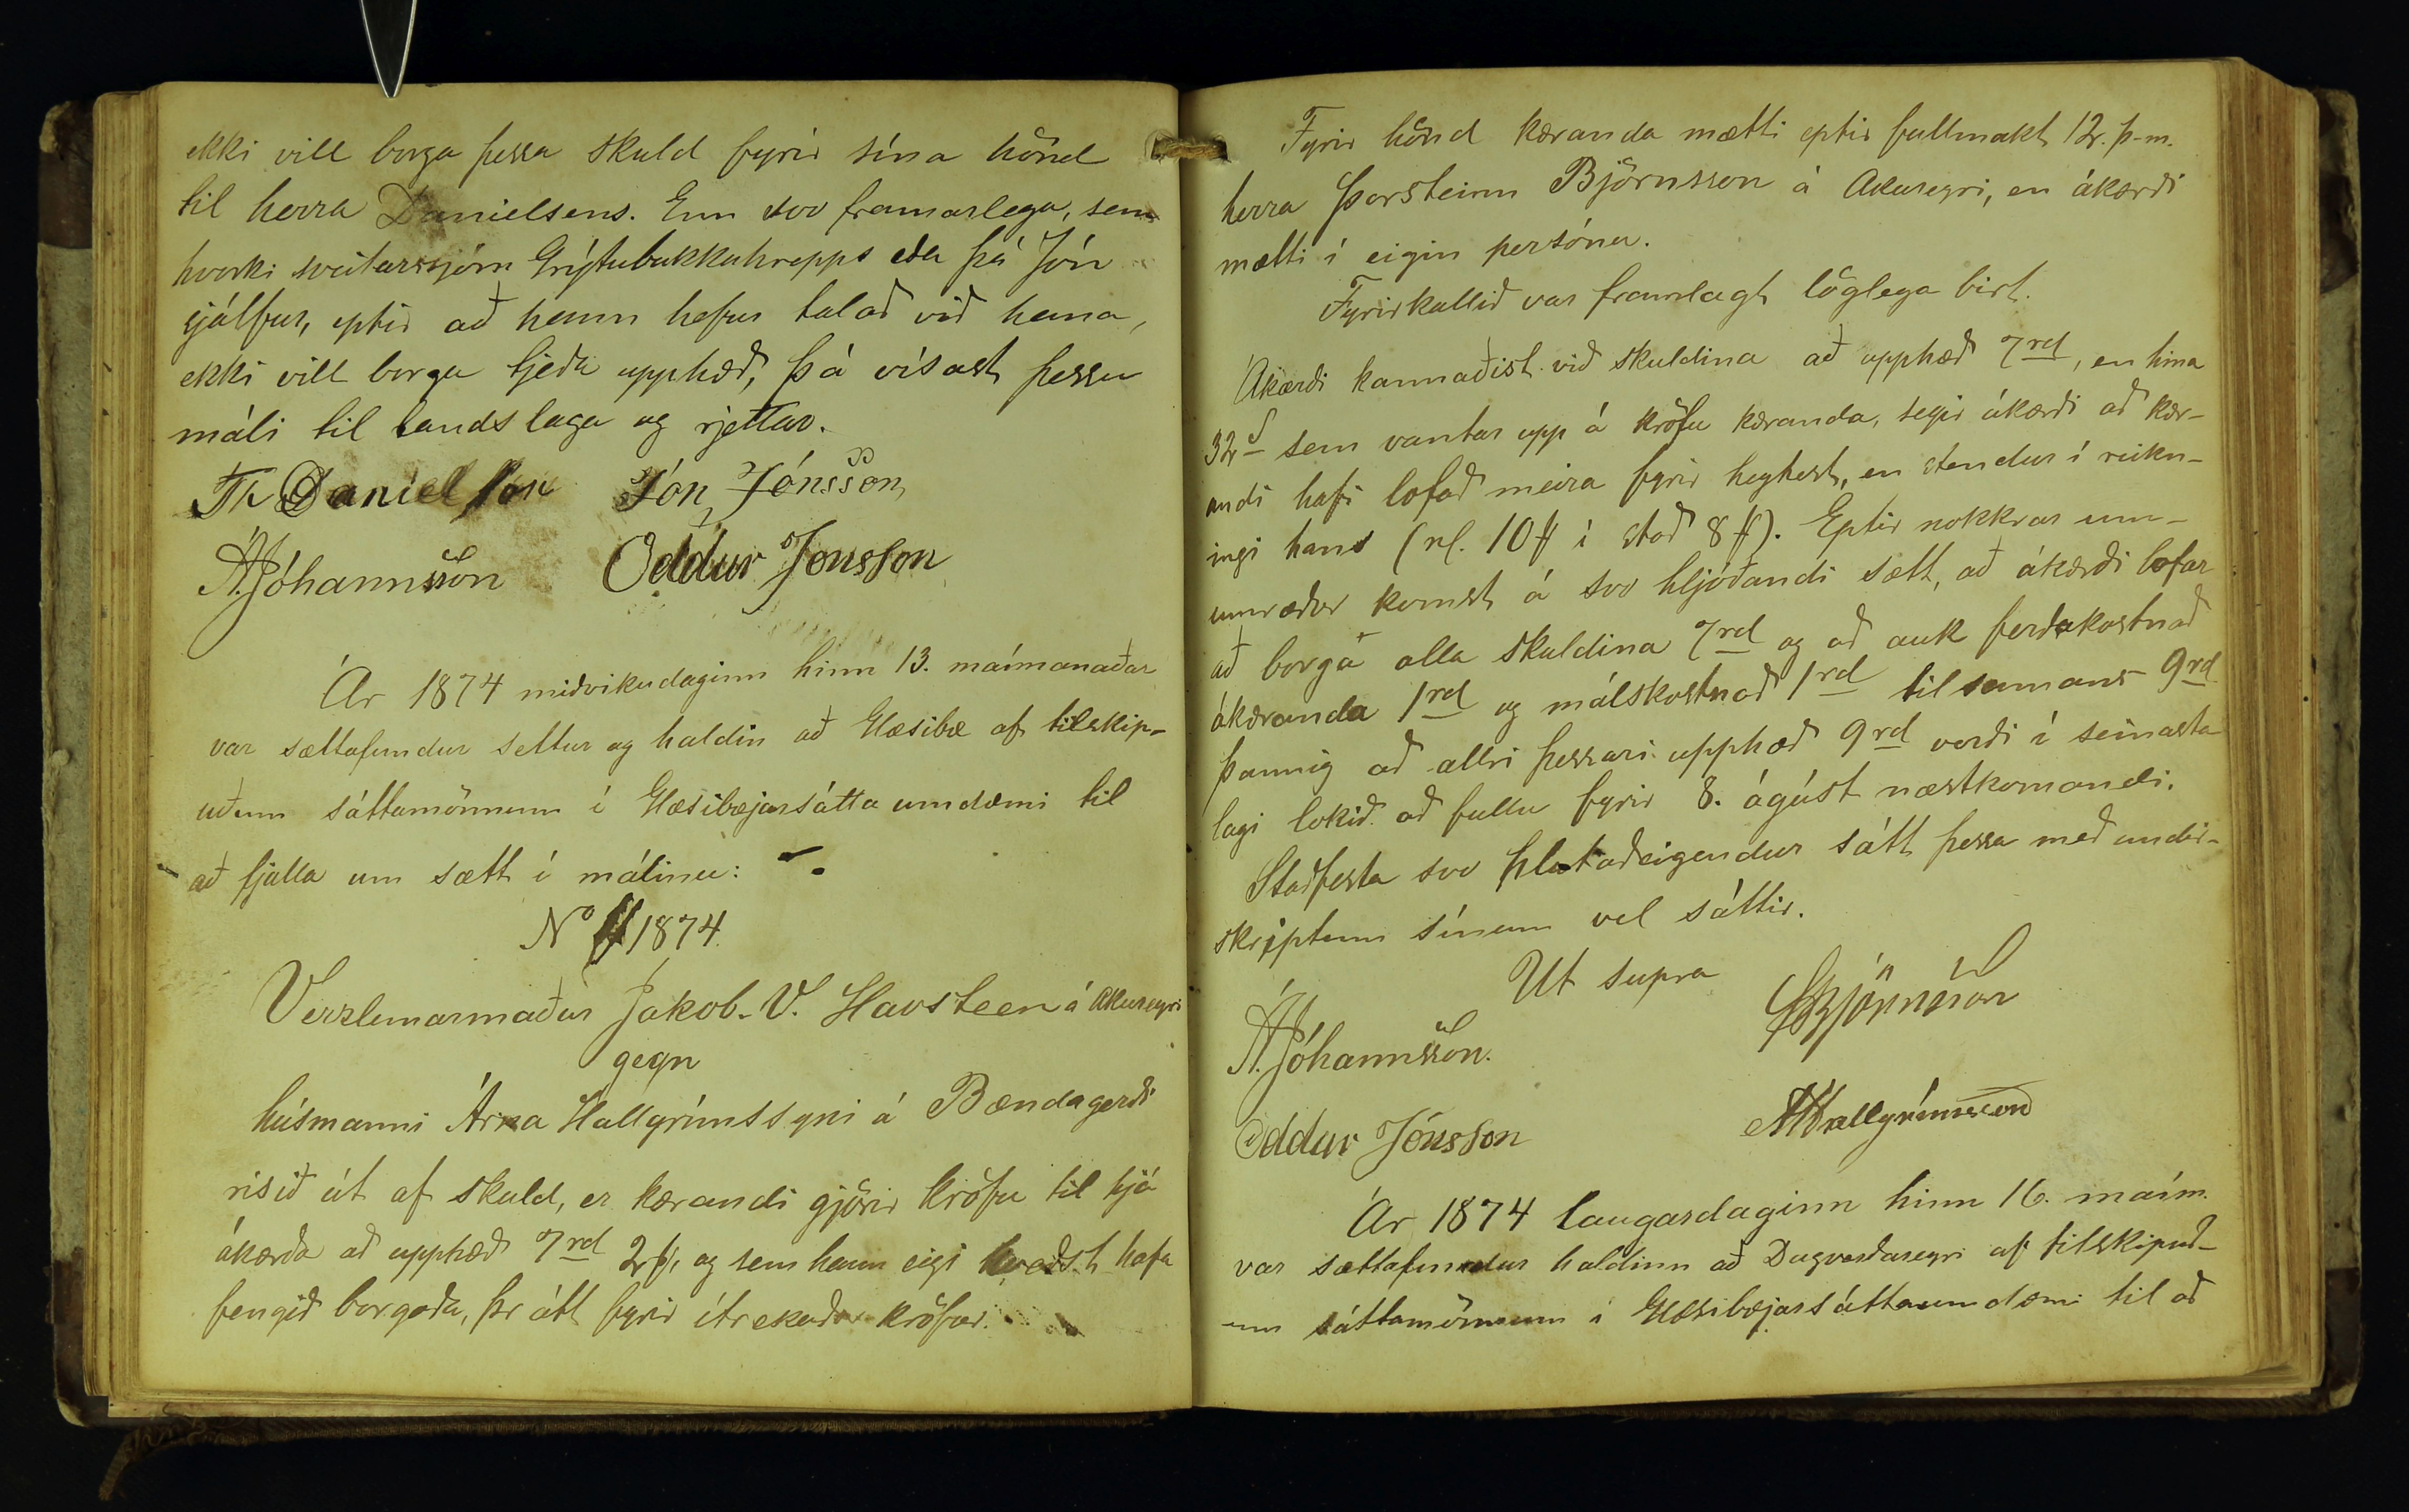 ekki vill borga þessa skuld fyrir sína hönd
til herra Danielsens. Enn svo framarlega, sem
hvorki sveitarstjórn Grýtubakkahrepps eða þá Jón
sjálfur, eptir að hann hefur talað við hana,
ekki vill borga tjeða upphæð, þá vísast þessu
máli til landslaga og rjettar.
Th Danielsson Jón Jónsson
Á. Jóhannsson Oddur Jónsson
Ár 1874 miðvikudaginn hinn 13. maímanaðar
var sættafundur settur og haldin að Glæsibæ af tilskip-
uðum sáttamönnum í Glæsibæjarsáttaumdæmi til
að fjalla um sætt í málinu:
No 1874.
Verzlunarmaður Jakob. V. Havsteen á Akureyri
gegn
húsmanni Árna Hallgrímssyni á Bændagerði
risið út af skuld, er kærandi gjörir kröfu til hjá
ákærða að upphæð 7rd 2, og sem hann eigi kveðst hafa
fengið borgaða, þr átt fyrir ítrekaðar kröfur.
Fyrir hönd kæranda mætti eptir fullmakt 12. þ-m.
herra Þorsteinn Björnsson á Akureyri, en ákærði
mætti í eigin persónu.
Fyrirkallið var framlagt löglega birt.
Ákærði kannaðist við skuldina að upphæð 7rd, en hina
32 s sem vantar upp á kröfu kæranda, segir ákærði að kær-
andi hafi lofað meira fyrir heyhest, en stendur í reikn-
ingi hans (nl. 10 í stað 8). Eptir nokkrar um-
umræður komst á svo hljóðandi sætt, að ákærði lofar
að borga alla skuldina 7rd og að auk ferðakostnað
ákæranda 1rd og málskostnað 1rd til samans 9rd
þannig að allri þessari upphæð 9rd verði í seinasta
lagi lokið að fullu fyrir 8. ágúst næstkomandi.
Staðfesta svo hlutaðeigendur sátt þessa með undir-
skriptum sínum vel sáttir.
Ut supra
Á. Jóhannsson. ÞBjörnsson
Oddur Jónsson ÁHallgrímsson
Ár 1874 laugardaginn hinn 16. maím.
var sættafundur haldinn að Dagverðareyri af tilskipuð-
um sáttamönnum í Glæsibæjarsáttaumdæmi til að